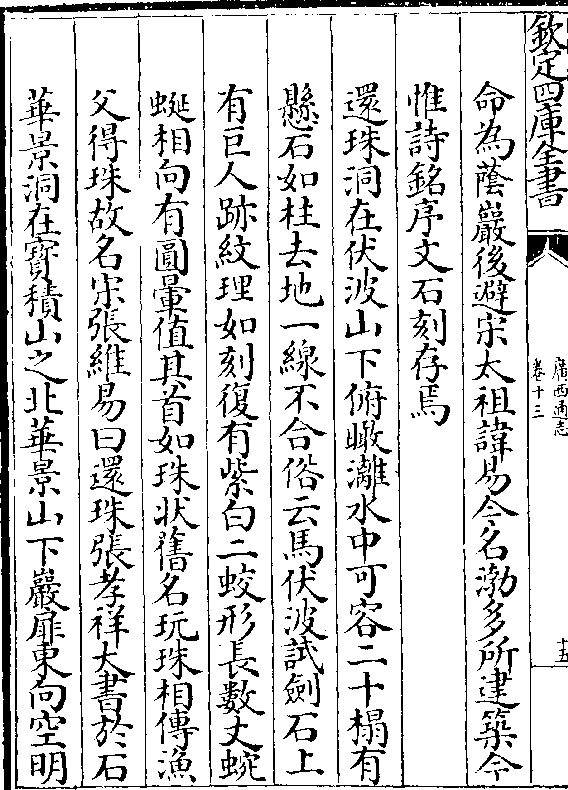 欽定四庫全書
廣西通志
卷十三
十五
命為䕃巖後避宋太祖諱易今名渤多所建築今
惟詩銘序文石刻存焉
還珠洞在伏波山下俯瞰灕水中可容二十榻有
懸石如柱去地一線不合俗云馬伏波試劍石上
有巨人跡紋理如刻復有紫白二蛟形長數丈蜿
蜒相向有圓暈值其首如珠狀舊名玩珠相傳漁
父得珠故名宋張維易曰還珠張孝祥大書於石
華景洞在寳積山之北華景山下巖扉東向空明